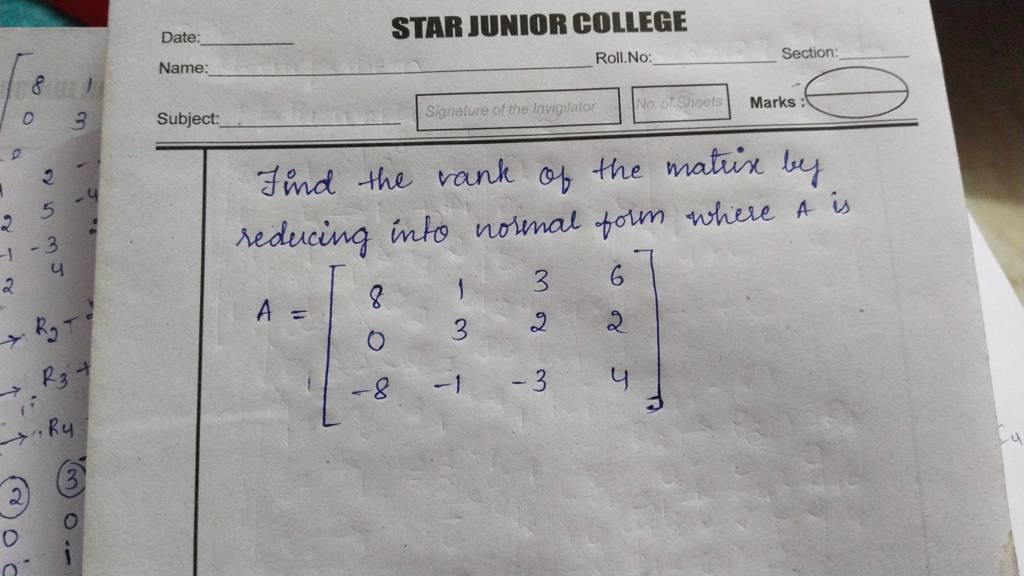 STAR JUNIOR COLLEGE
Date:
Name: Roll.No: Section:
Subject: Signature of the Invigilator No. of Sheets Marks :
Find the rank of the matrix by
reducing into normal form where A is
A = [ 8 1 3 6
0 3 2 2
-8 -1 -3 4 ]
8 1
0 3
2 -
2 5 -4
-1 -3 2
2 4
→ R2 +
→ R3 +
→ R4
2 3
0 0
0 1